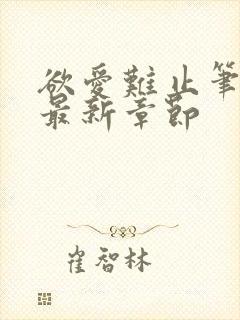 欲愛難止筆
最新章節
崔智林